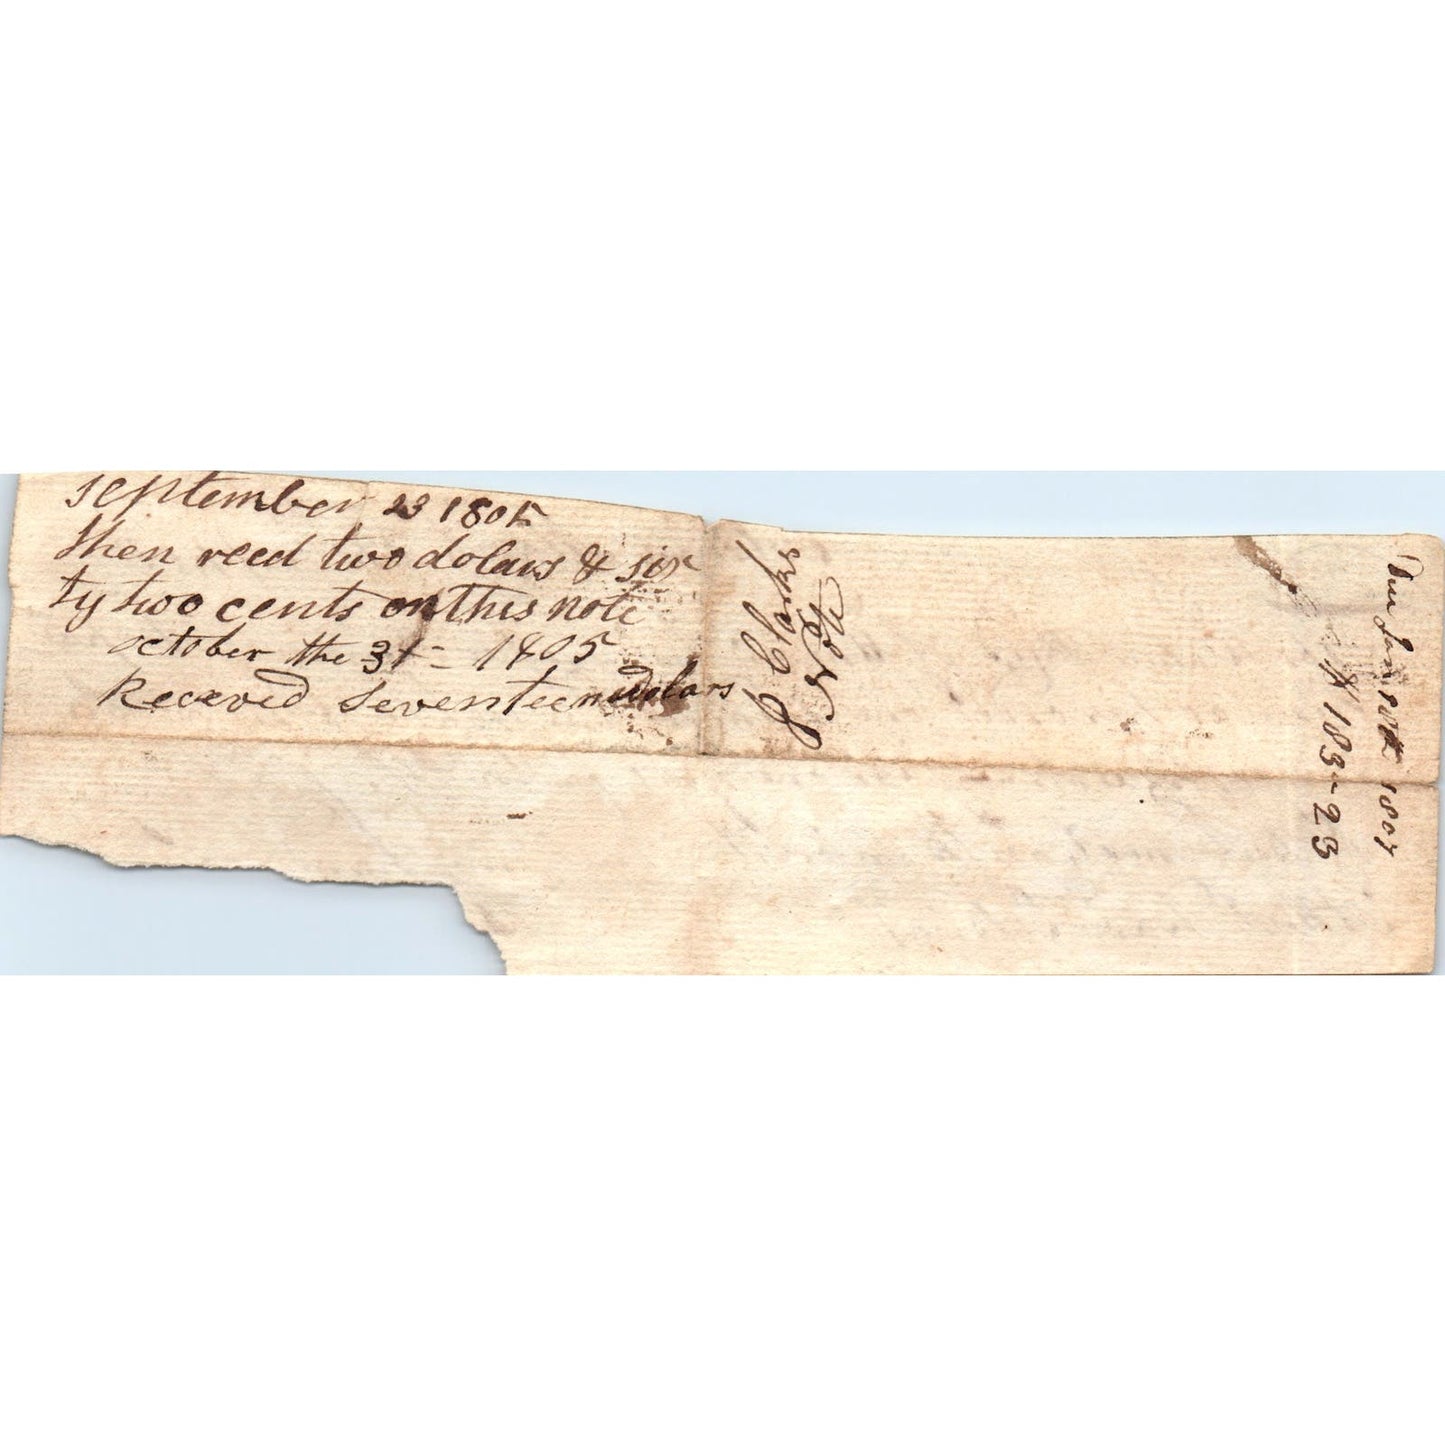 September 23 1805
then recd two dolars & six
ty two cents on this note
october the 31 = 1805
Receved seventeen dolars
J Clarks
Note
Due Jan 1807
183-23